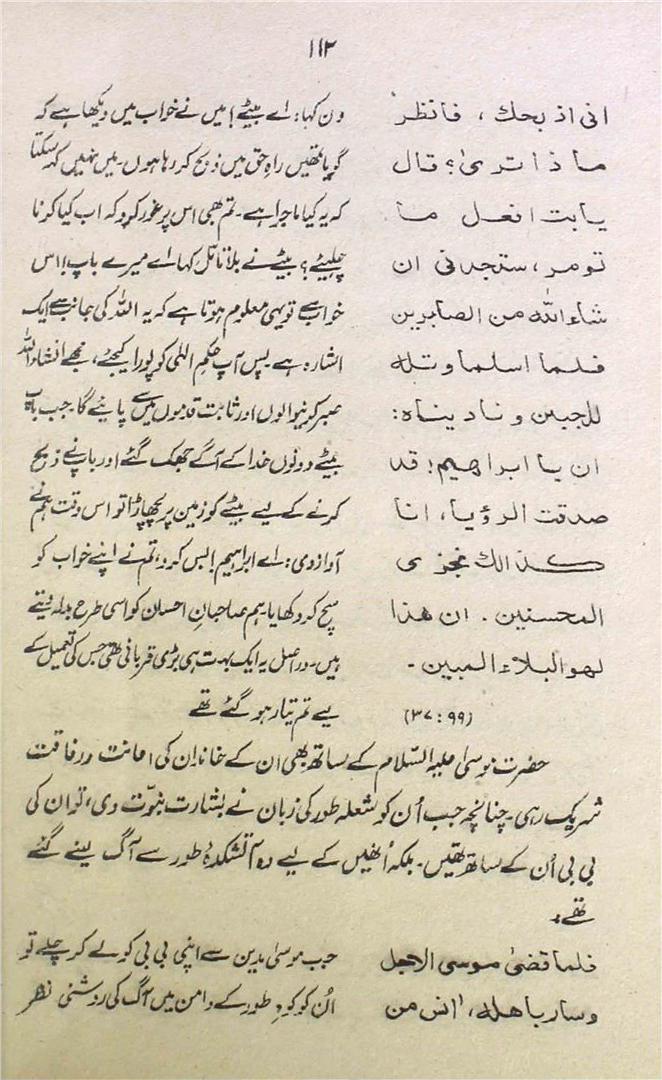 ۱۱۲
انی اذبحك ، فانظر
ماذا تریٰ؟ قال
یابت افعل ما
تومر، ستجدنی ان
شاء اللّٰہ من الصابرین
فلما اسلما و تلہ
للجبین و نادیناہ:
ان یا ابراھیم! قد
صدقت الرؤیا، انا
کذالك نجزی
المحسنین. ان ھذا
لھو البلاء المبین -
(۳۷:۹۹)
ون کہا: اے بیٹے! میں نے خواب میں دیکھا ہے کہ
گویا تمھیں راہِ حق میں ذبح کر رہا ہوں۔ میں نہیں کہہ سکتا
کہ یہ کیا ماجرا ہے۔ تم بھی اس پر غور کرو کہ اب کیا کرنا
چاہیئے؟ بیٹے نے بلا تامّل کہا اے میرے باپ! اس
خواب سے تو یہی معلوم ہوتا ہے کہ یہ اللّٰہ کی جانب سے ایک
اشارہ ہے پس آپ حکمِ الٰہی کو پورا کیجئے، مجھے انشاء اللّٰہ
صبر کرنیوالوں اور ثابت قدموں میں سے پایئے گا۔ جب باپ
بیٹے دونوں خدا کے آگے جھک گئے اور باپ نے ذبح
کرنے کے لیے بیٹے کو زمین پر پچھاڑا تو اس وقت ہم نے
آواز دی: اے ابراہیم! بس کرو، تم نے اپنے خواب کو
سچ کر دکھایا۔ ہم صاحبانِ احسان کو اسی طرح بدلہ دیتے
ہیں۔ دراصل یہ ایک بہت ہی بڑی قربانی تھی جس کی تعمیل کے
لیے تم تیار ہو گئے تھے
حضرت موسیٰ علیہ السّلام کے ساتھ بھی ان کے خاندان کی اعانت و رفاقت
شریک رہی۔ چنانچہ جب اُن کو شعلۂ طور کی زبان نے بشارت نبوّت دی، تو ان کی
بی بی اُن کے ساتھ تھیں۔ بلکہ اُنھیں کے لیے وہ آتشکدۂ طور سے آگ لینے گئے
تھے۔
فلما قضیٰ موسی الاجل
و سار باھلہ، اٰنس من
جب موسیٰ مدین سے اپنی بی بی کو لے کر چلے تو
اُن کو کوہِ طور کے دامن میں آگ کی روشنی نظر